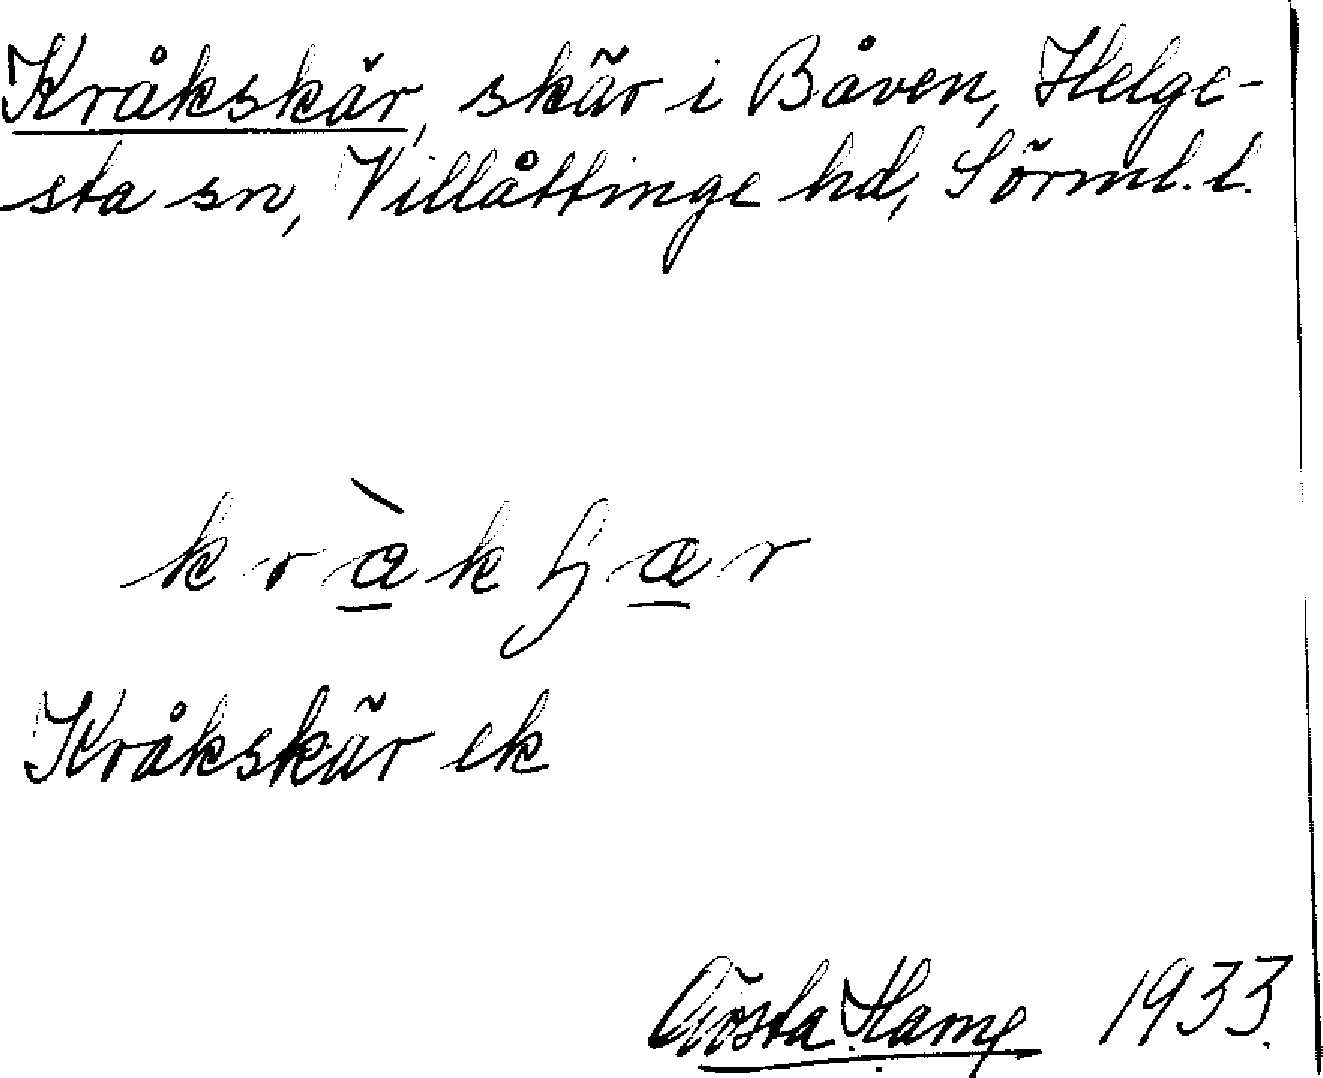 Kråkskär, skär i Båven, Helge-
sta sn, Villåttinge hd, Sörml. l.
Kråkskär ek
Gösta Hamp 1933.